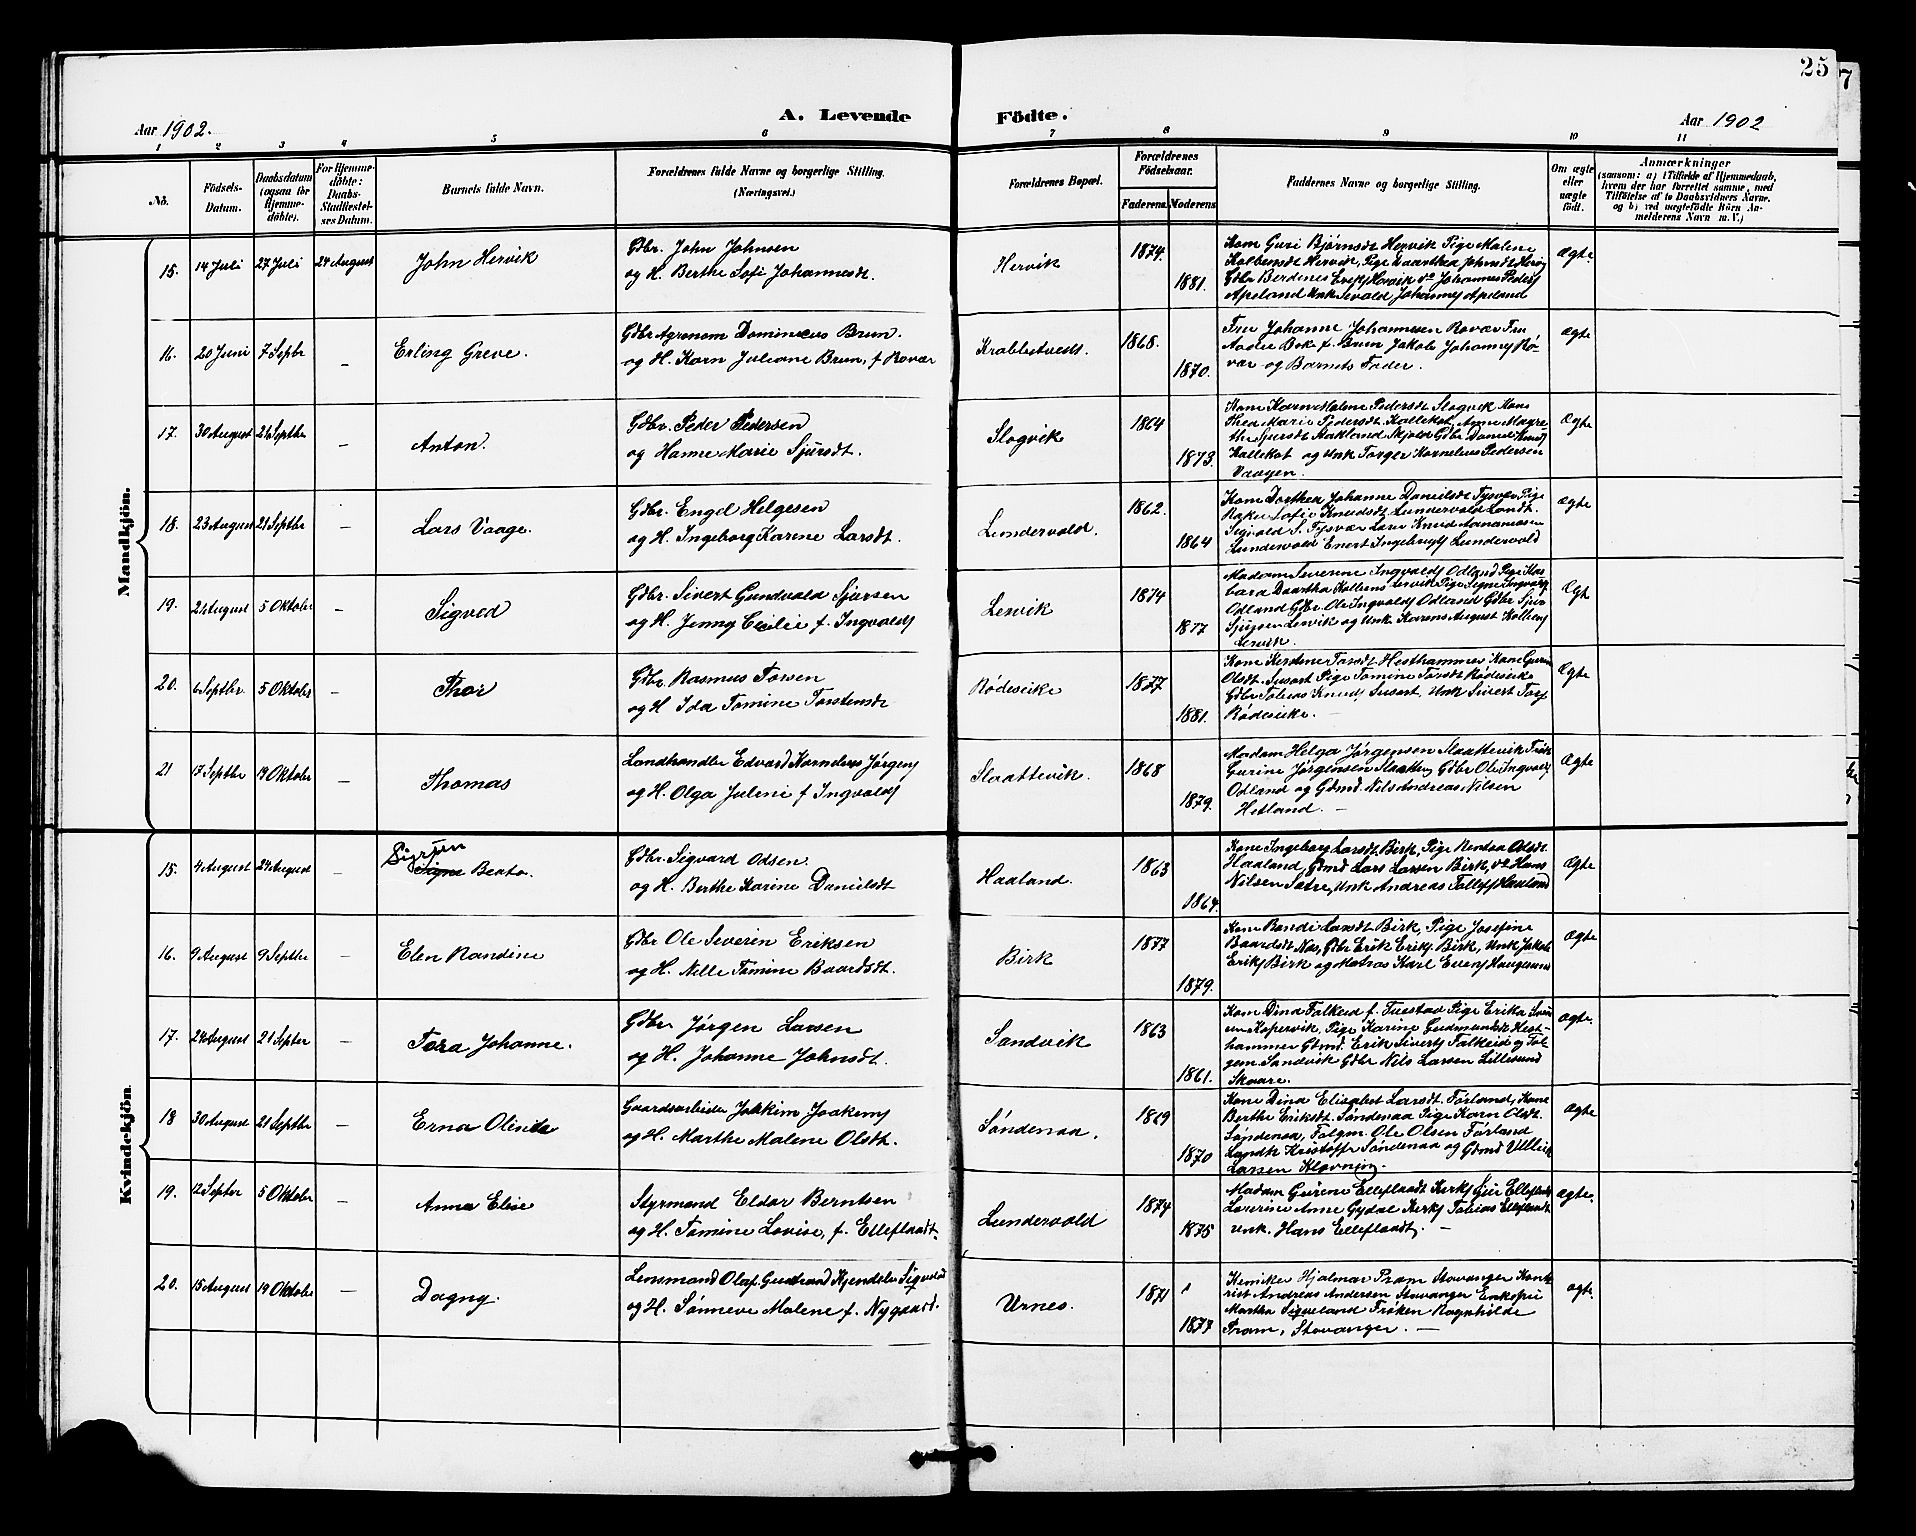 25
7
A. Levende Födte.
Aar 1902.
Aar 1902
1 2 3 4 5 6 7 8 9 10 11
No.
Födsels-Datum.
Daabsdatum (ogsaa for Hjemme-döbte).
For Hjemme-döbte: Daabs-Stadfæstel-ses Datum.
Barnets fulde Navn.
Forældrenes fulde Navne og borgerlige Stilling. (Næringsvei.)
Forældrenes Bopæl.
Forældrenes Födselsaar.
Faderens. Moderens.
Faddernes Navne og borgerlige Stilling.
Om ægte eller uægte födt.
Anmærkninger
(saasom: a) i Tilfælde af Hjemmedaab,
hvem der har forrettet samme, med
Tilföielse af to Daabsvidners Navne.
og b) ved uægtefödte Börn An-
melderens Navn m. V.)
Mandkjön.
15. 14 Juli 27 Juli 24 August John Hervik
Gdbr. John Johnsen
og H. Berthe Sofi Johannesdt.
Hervik 1874. 1881.
Kone Guri Bjørnsdt Hervik Pige Malene
Kolbensdt Hervik, Pige Daarthea Johnsdt Hervig
Gdbr Berdenes Eriks Hervik do Johannes Peders
Apeland Unk Sevald Johannes Apeland
Ægte.
16. 20 Juni 7 Septbr – Erling Greve.
Gdbr Agronom Dominicus Brun.
og H. Karn Juliane Brun, f. Rovær
Krabbetvedt. 1868. 1870.
Fru Johanne Johannesen Rovær Fru
Aadne Bok f. Brun Jakob Johannes Rö-
vær og Barnets Fader.
Ægte
17. 30 August 21 Septbr – Anton.
Gdbr. Peder Pedersen
og Hanne Marie Sjursdt.
Slogvik 1864 1873.
Kone Karn Malene Pedersdt Slogvik Kone
Thea Marie Pedersdt Kallekot, Anne Magre-
the Sjursdt Aakland Skjold Gdbr Daniel Knud
Kallekot og Unk Torger Kornelius Pedersen
Vaagen.
Ægte
18. 23 August 21 Septbr – Lars Vaage.
Gdbr. Engel Helgesen
og H. Ingeborg Karine Larsdt.
Lundervold. 1862. 1864
Kone Dorthea Johanne Danielsdt Tysvær Pige
Sofie Knudsdt Lundervold Landt.
Sigvald S. Tysvær Lærer Knud
Lundervold Enert Ingebrigts Lundervold
Ægte
19. 24 August 5 Oktober – Sigved
Gdbr. Sivert Gundvald Sjursen
og H. Jenny Cicilie f. Ingvalds
Lervik 1874 1877
Madam Severine Ingvalds Odland Pige Kas-
Daartha Kolbens Lervik Pige Signe Ingvalds
Odland Gdbr Ole Ingvalds Odland Gdbr Sjur
Sjursen Lervik og Unk Karens August Kolbens
Lervik
Ægte
20. 6 Septbr. 5 Oktober – Thor
Gdbr. Rasmus Torsen
og H Ida Tomine Torstensdt
Rødesvike 1877 1881.
Kone Kirstine Torsdt Hesthammer Kone Guren
Olsdt. Susort Pige Tomine Torsdt Rødesvike
Gdbr Tobias Knuds Susort, Unk Sivert Tors
Rødesvike. –
Ægte
21 17 Septbr 19 Oktober – Thomas
Landhandler Edvard Kornelius Jørgens
og H. Olga Juline f Ingvalds
Slaattevik. 1868 1879.
Madam Helga Jørgensen Slaattevik Frøk
Gurine Jørgensen Slaattev, Gdbr Ole Ingvalds
Odland og Gdmd. Nils Andreas Nilsen
Hetland. –
Ægte
Kvindekjön
15. 4 August 24 August – Sigrun
Signe Beata.
Gdbr. Sigvard Odsen.
og H. Berthe Karine Danielsdt
Haaland. 1863 1864.
Kone Ingeborg Larsdt Birk, Pige Rentaa Olsdt.
Haaland, Gdmd Lars Larsen Birk, do Hans
Nilsen Sætre, Unk Andreas Tollefs Haaland
Ægte
16. 9 August 9 Septbr – Elen Randine
Gdbr Ole Severin Eriksen
og H. Nille Tomine Baardsdt.
Birk 1877 1879.
Kone Randi Larsdt Birk, Pige Josefine
Baardsdt Næs, Gdbr Erik Eriks. Birk, Unk Jakob
Eriks Birk og Matros Karl Evens Haugesund
Ægte
17. 24 August 21 Septbr – Tora Johanne.
Gdbr Jørgen Larsen
og H. Johanne Johnsdt.
Sandvik 1863 1861.
Kone Dina Falkeid f. Tuestad Pige Erika
Kopervik, Pige Karine Gudmundsdt Hest-
hammer Gdmd. Erik Siverts Falkeid og Fol-
gem. Sandvik Gdbr Nils Larsen Lillesund
Skaare.
Ægte.
18 30 August 21 Septbr – Erna Olinda
Gaardsarbeider Joakim Joakems
og H. Marthe Malene Olsdt.
Søndenaa. 1869 1870
Kone Dina Elisabet Larsdt. Førland, Kone
Berthe Eriksdt. Søndenaa Pige Karn Olsdt.
Søndenaa, Folgm. Ole Olsen Førland
Landh Kristoffer Søndenaa og Gdmd Villuk
Larsen Klovning.
Ægte
19. 12 Septbr 5 Oktober – Anna Elise
Styrmand Eldar Berntsen
og H. Tomine Lovise, f. Elleflaadt.
Lundervold 1874 1875
Madam Gurine Elleflaadt Kirks Elleflaadt
Anne Gydal Kirks Tobias Elleflaadt
Unk. Hans Elleflaadt. –
Ægte.
20. 15 August 19 Oktober – Dagny.
Lensmand Olaf Gustaad Kjendslev Sigveland
og H. Sønneve Malene f. Nygaard.
Urnes. 1871 1877
Kemiker Hjalmar Pram Stavanger Kont-
rist Andreas Andersen Stavanger Enkefru
Martha Sigveland Frøken Ragnhilde
Pram, Stavanger. –
Ægte.